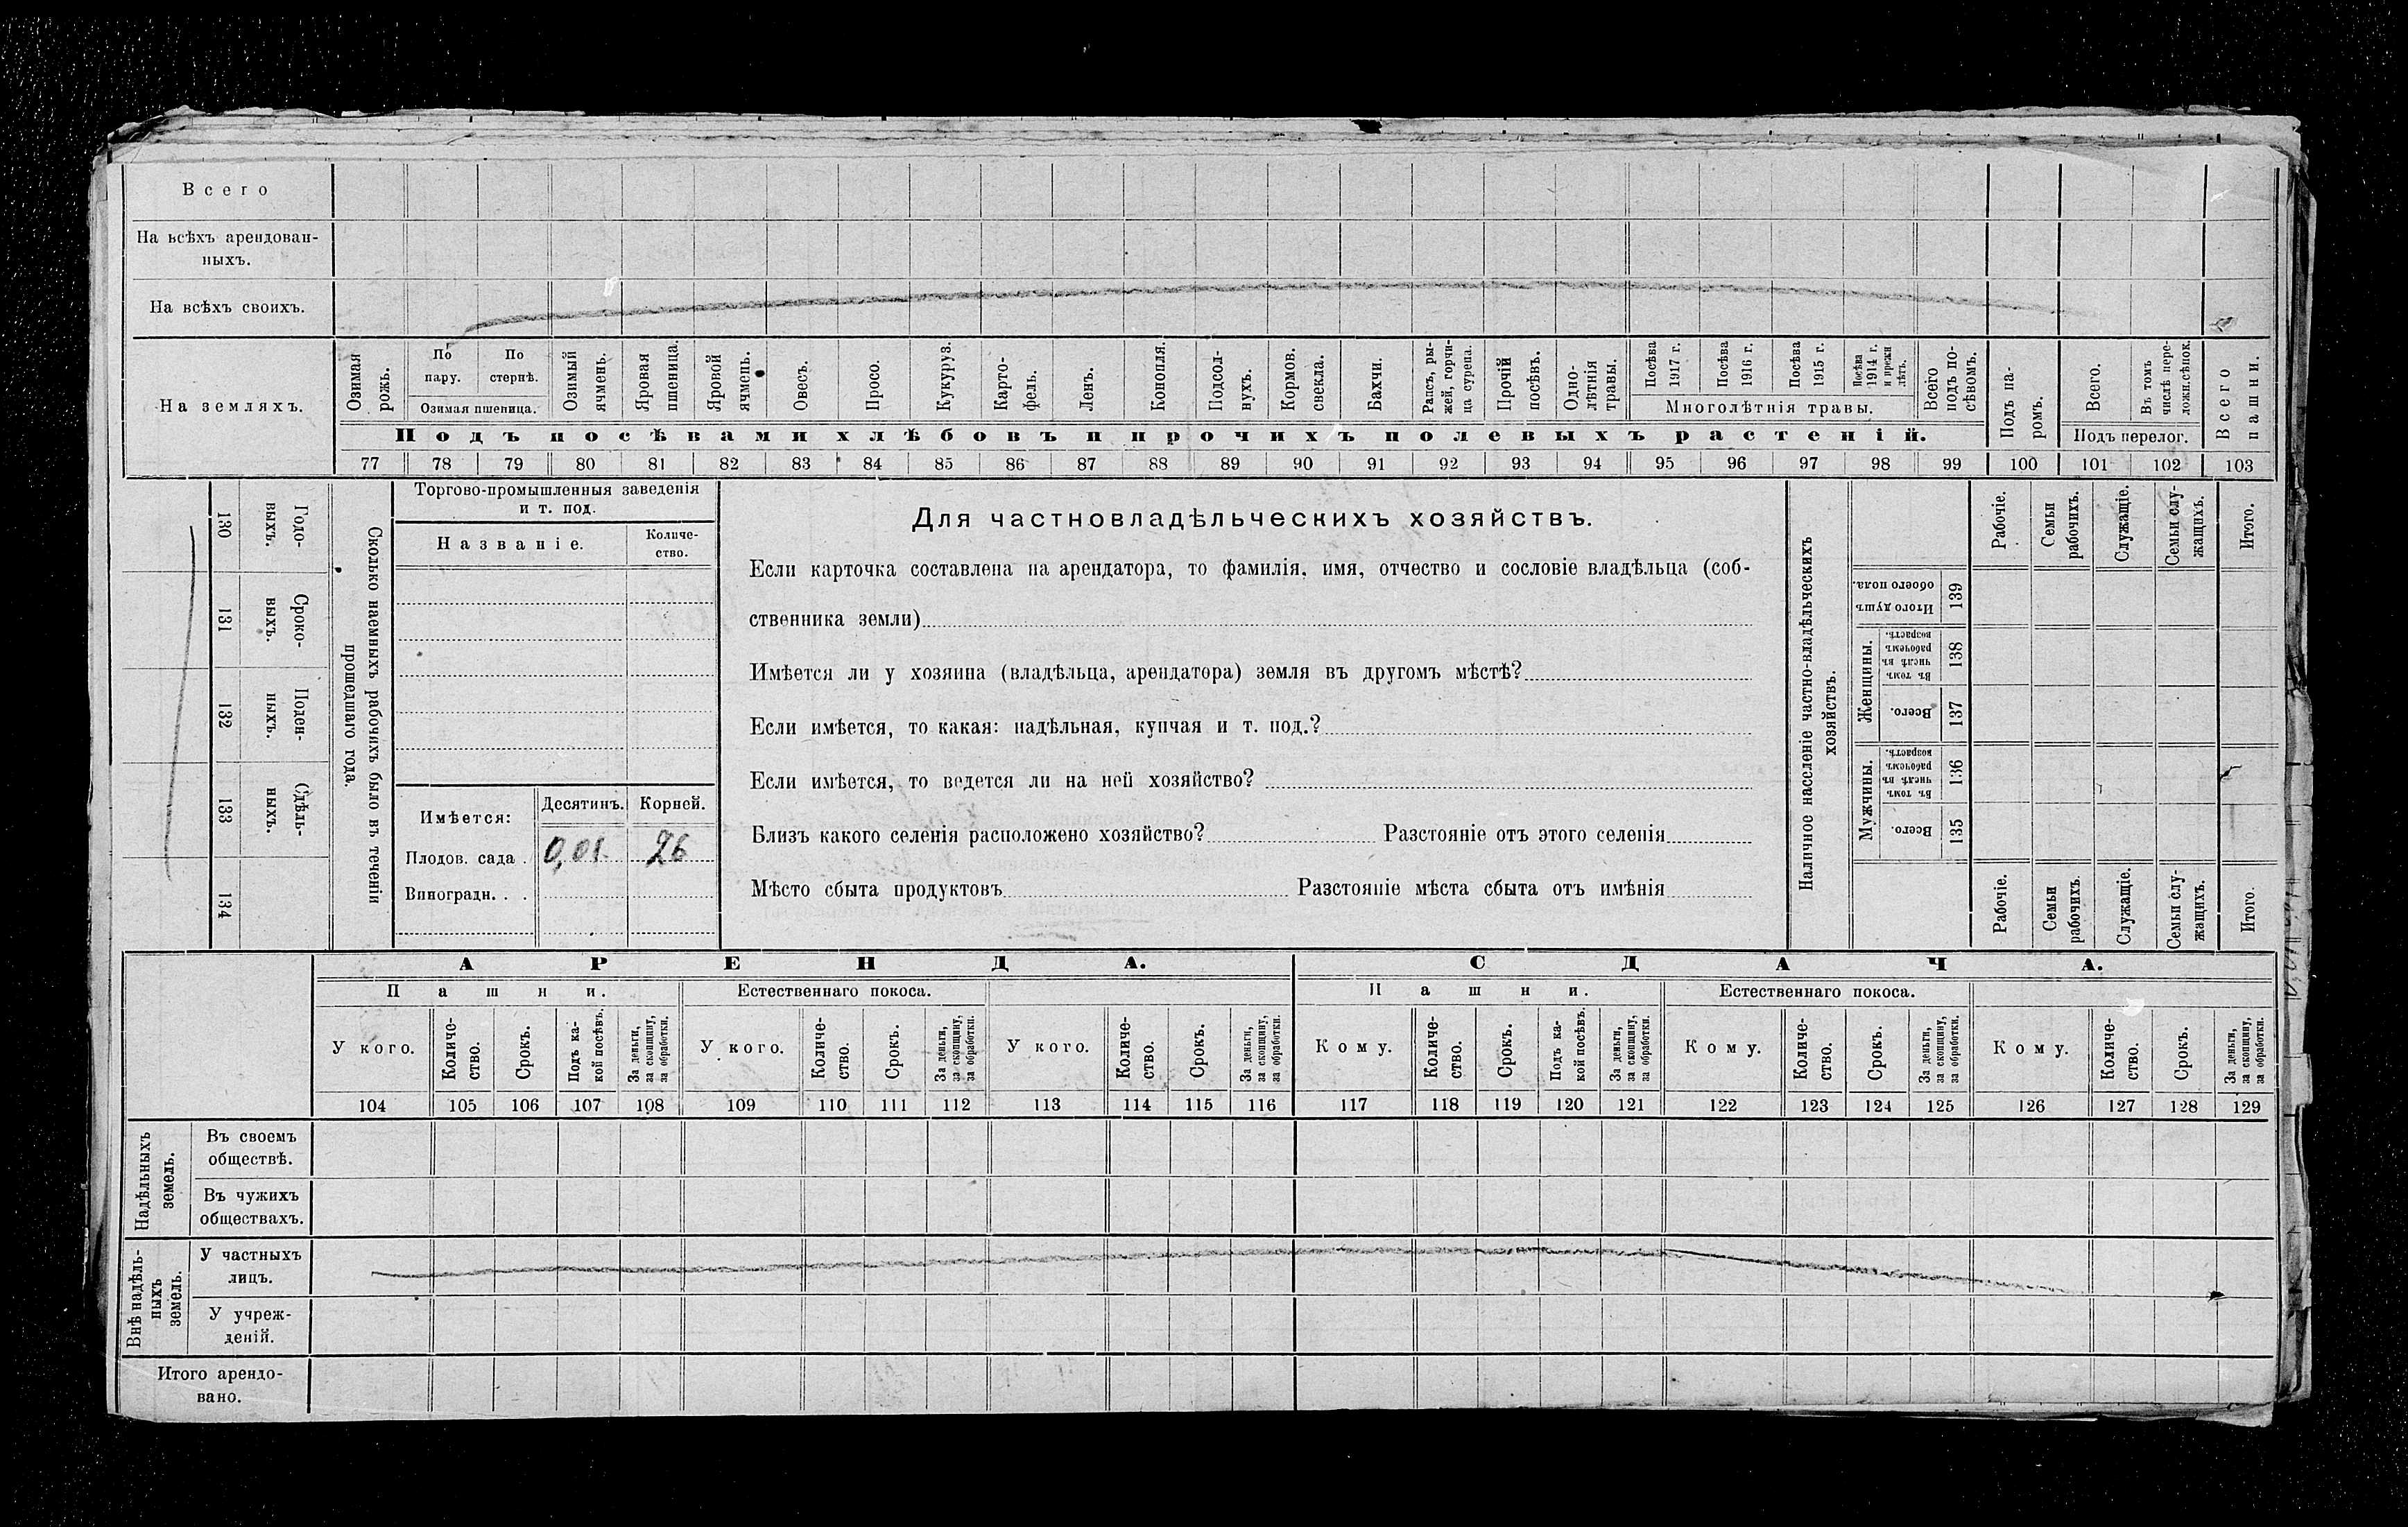 Всего
На всѣхъ арендован-
ныхъ.
На всѣхъ своихъ.
На земляхъ.
Озимая рожь.
По пару.
По стернѣ.
Озимая пшеница.
Озимый ячмень.
Яровая пшеница.
Яровой ячмень.
Овесъ.
Просо.
Кукуруз.
Карто-
фель.
Ленъ.
Конопля.
Подсол-
нухъ.
Кормов. свекла.
Бахчи.
Рапсъ, ры-
жей, горчи-
ца сурепа.
Прочій посѣвъ.
Одно-
лѣтнія травы.
Посѣва 1917 г.
Посѣва 1916 г.
Посѣва 1915 г.
Посѣва 1914 г. и прежн лѣтъ.
Многолѣтнія травы.
Всего подъ по-
сѣвомъ.
Подъ па-
ромъ.
Всего.
Въ томъ числѣ пере-
ложн.сѣнок.
Подъ перелог.
Всего пашни.
Подъ посѣвами хлѣбовъ и прочихъ полевыхъ растеній.
77 78 79 80 81 82 83 84 85 86 87 88 89 90 91 92 93 94 95 96 97 98 99 100 101 102 103
130 Годо-
выхъ.
131 Сроко-
выхъ.
132 Поден-
ныхъ.
133 Сдѣль-
ныхъ.
134
Сколько наемныхъ рабочихъ было въ теченіи
прошедшаго года.
Торгово-промышленныя заведенія
и т. под.
Названіе.
Количе-
ство.
Имѣется:
Десятинъ.
Корней.
Плодов. сада . 0,01 26
Виноградн. . .
Для частновладѣльческихъ хозяйствъ.
Если карточка составлена на арендатора, то фамилія, имя, отчество и сословіе владѣльца (соб-
ственника земли)
Имѣется ли у хозяина (владѣльца, арендатора) земля въ другомъ мѣстѣ?
Если имѣется, то какая: надѣльная, купчая и т. под.?
Если имѣется, то ведется ли на ней хозяйство?
Близъ какого селенія расположено хозяйство? Разстояніе отъ этого селенія
Мѣсто сбыта продуктовъ Разстояніе мѣста сбыта отъ имѣнія
Наличное населеніе частно-владѣльческихъ
хозяйствъ.
Рабочіе.
Семьи рабочихъ.
Служащіе.
Семьи слу-
жащихъ.
Итого.
Итого душъ обоего пола. 139
Женщины.
Въ томъ числѣ въ рабочемъ возрастѣ. 138
Всего. 137
Мужчины.
Въ томъ числѣ въ рабочемъ возрастѣ. 136
Всего. 135
Рабочіе.
Семьи рабочихъ.
Служащіе.
Семьи слу-
жащихъ.
Итого.
АРЕНДА. СДАЧА.
Пашни. Естественнаго покоса. Пашни. Естественнаго покоса.
У кого.
Количе-
ство.
Срокъ.
Подъ ка-
кой посѣвъ.
За деньги, за скопщину, за обработки.
У кого.
Количе-
ство.
Срокъ.
За деньги, за скопщину, за обработки.
У кого.
Количе-
ство.
Срокъ.
За деньги, за скопщину, за обработки.
Кому.
Количе-
ство.
Срокъ.
Подъ ка-
кой посѣвъ.
За деньги, за скопщину, за обработки.
Кому.
Количе-
ство.
Срокъ.
За деньги, за скопщину, за обработки.
Кому.
Количе-
ство.
Срокъ.
За деньги, за скопщину, за обработки.
104 105 106 107 108 109 110 111 112 113 114 115 116 117 118 119 120 121 122 123 124 125 126 127 128 129
Надѣльныхъ земель.
Въ своемъ
обществѣ.
Въ чужихъ
обществахъ.
Внѣ надѣль-
ныхъ земель.
У частныхъ
лицъ.
У учреж-
деній.
Итого арендо-
вано.